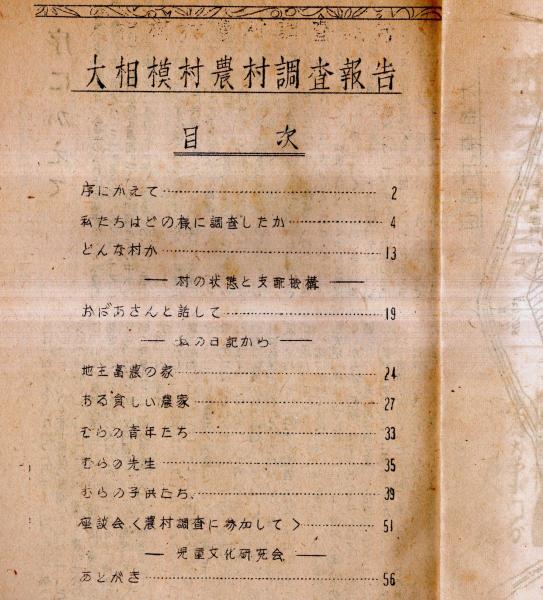 大相模村農村調査報告
目次
序にかえて 2
私たちはどの様に調査したか 4
どんな村か 13
村の状態と支配機構
おばあさんと話して 19
私の日記から
地主富農の家 24
ある貧しい農家 27
むらの青年たち 33
むらの先生 35
むらの子供たち 39
座談会<農村調査に参加して> 51
児童文化研究会
あとがき 56